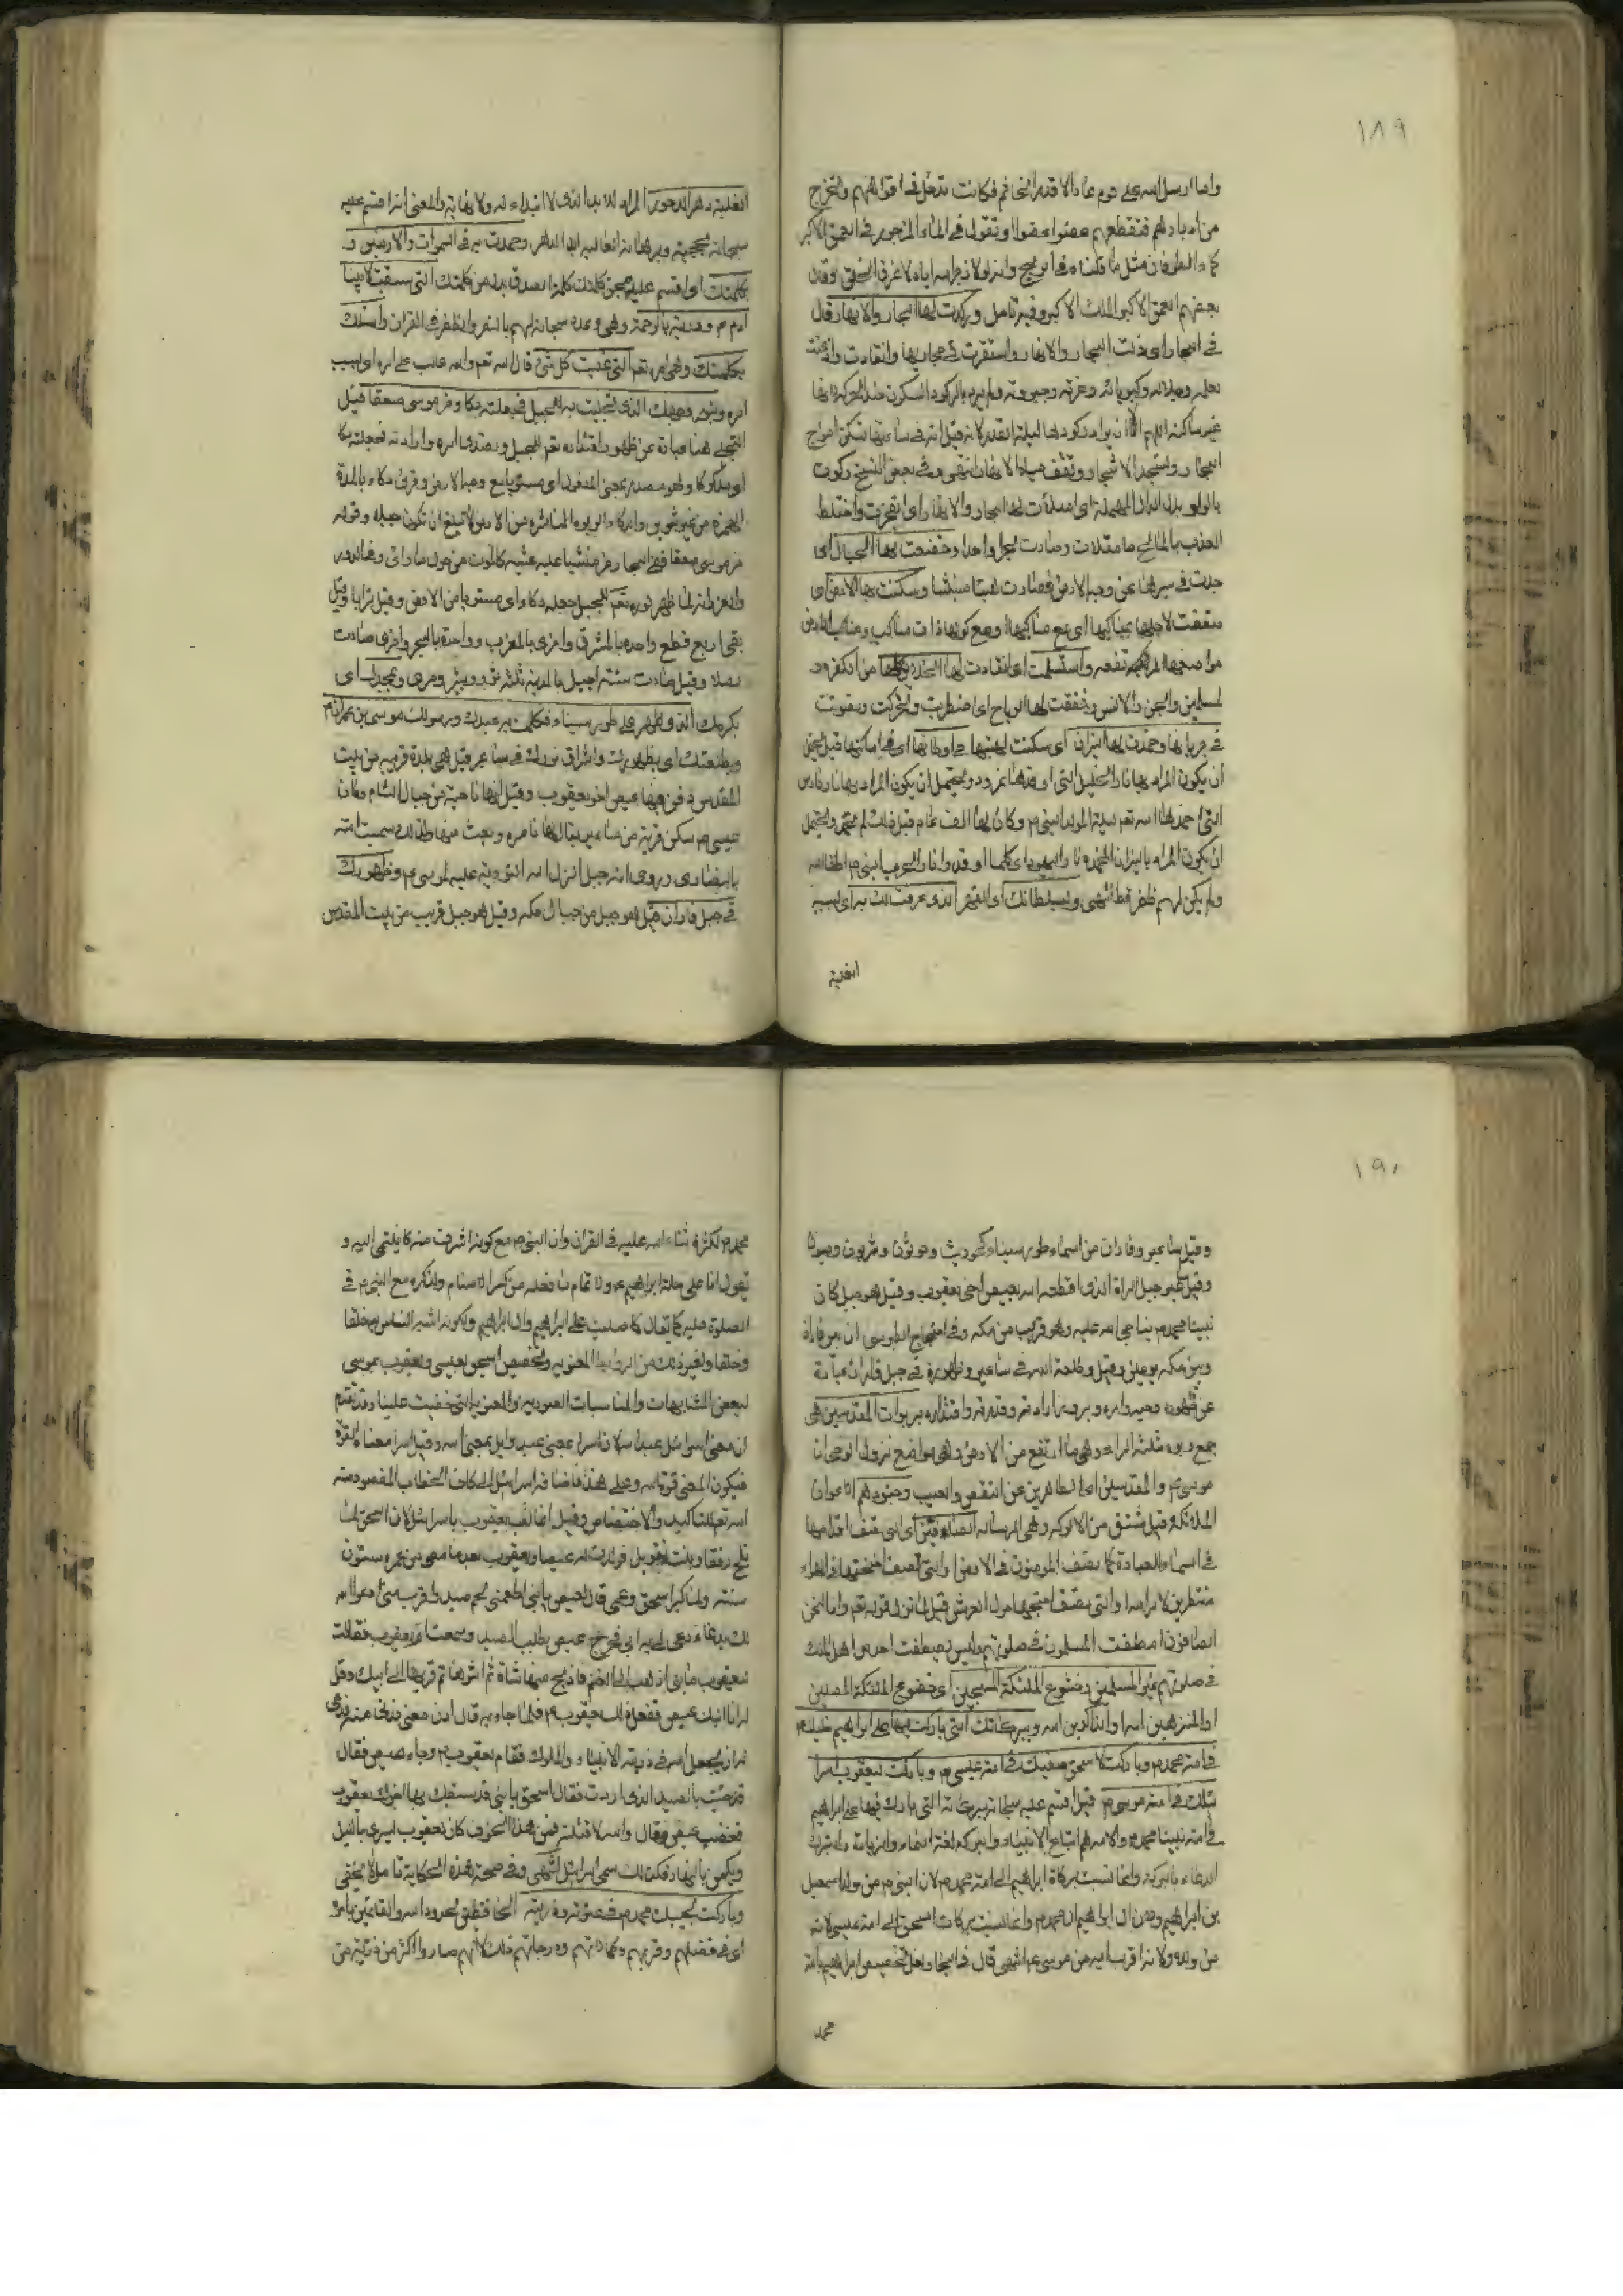 ١٨٩
واما ارسل الله على قوم عاد الا قدر الخاتم فكانت تدخل في افواههم وتخرج
من ادبارهم فتقطعهم عضوا عضوا وتقول في الماء المزجور في العمق الاكبر
كماء الطوفان مثل ما قلناه في الريح وانه لولا زجر الله اياه لاغرق الخلق وقال
بعضهم العمق الاكبر الفلك الاكبر وفيه تامل وركدت لها البحار والانهار قال
في البحار اي ذلت البحار والانهار واستقرت في مجاريها وانقادت
لعلمه وجلاله وكبريائه وعزته وجبروته ولم يرد بالركود السكون ضد الحركة لانها
غير ساكنة اللهم الا ان يراد ركودها ليلة القدر لانه قيل انه في ساعتها تسكن امواج
البحار وتسجد الاشجار وتقف مياه الانهار انتهى وفي بعض النسخ وكون
بالواو بدل الدال المهملة اي امتلأت لها البحار والانهار اي تفجرت واختلط
العذب بالمالح فامتلات وصارت بحرا واحدا وخضعت لها الجبال اي
جرت في سيرها عن وجه الارض فصارت هباء منبثا وسكنت لها الارض اي
سقفت لاجلها بمناكبها اي مع مناكبها او مع كونها ذات مناكب ومناكب الارض
مواضعها المرتفعة واستسلمت اي انقادت لها الخلائق كلها من الكفرة و
المسلمين والجن والانس وخفقت لها الرياح اي اضطربت وتحركت وصوتت
في جريانها وخمدت لها النيران اي سكنت لهبها في اوطانها اي في اماكنها قيل يحتمل
ان يكون المراد بها نار الخليل التي اوقدها نمرود ويحتمل ان يكون المراد بها نار فارس
التي اخمدها الله تعم ليلة المولد النبي م وكان لها الف عام قبل ذلك لم تخمد ويحتمل
ان يكون المراد بالنيران المخمدة نار اليهود اي كلما اوقدوا نارا لحرب النبي م اطفاها الله
ولم يكن لهم ظفر قط انتهى وبسلطانك اي القهر الذي عرفت لك به اي بسببه
الغلبة
الغلبة دهر الدهور المراد الابد الذي لا ابتداء له ولا نهاية والمعنى انه اقسم عليه
سبحانه بحجته وبرهانه الغالب ابد الدهر وحمدت به في السموات والارضين و
بكلمتك اي اقسم عليك بحق كلمتك كلمة الصدق بدل من كلمتك التي سبقت لابينا
ادم م وذريته بالرحمة وهي وعده سبحانه لهم بالنصر والظفر في القران واسئلك
بكلمتك وهي امره تعم التي غلبت كل شئ قال الله تعم والله غالب على امره اي بسبب
امره وبنور وجهك الذي تجليت به للجبل فجعلته دكا وخر موسى صعقا قيل
التجلي هنا عبارة عن ظهور اقتداره تعم للجبل وتصدى امره وارادته فجعلته دكا
اي مدكوكا وهو مصدر بمعنى المفعول اي مستويا مع وجه الارض وقرئ دكاء بالمدة
الهمزة من غير تنوين والدكاء الربوة الناشزة من الارض لا تبلغ ان تكون جبلا وقوله
خر موسى صعقا ففي البحار خر مغشيا عليه غشية كالموت من هول ما راى
والعز انه لما ظهر نوره تعم للجبل جعله دكاء اي مستويا من الارض وقيل ترابا وقيل
بقي اربع قطع واحدة بالمشرق واخرى بالمغرب وواحدة بالبحر واخرى صارت
رملا وقيل صارت ستة اجبل بالمدينة ثلثة وبمجدك اي
بكرمك الذي ظهر على طور سيناء فكلمت به عبدك ورسولك موسى بن عمران م
وبطلعتك اي بظهورك واشراق نورك في ساعير قيل هي بلدة قريبة من بيت
المقدس دفن فيها عيص اخو يعقوب وقيل انها ناحية من جبال الشام وكان
عيسى م سكن قرية من ساعير يقال لها ناصرة وبعث منها فلذلك سميت امته
بالنصارى وروى انه جبل انزل الله التورية عليه لموسى م وظهورك
في جبل فاران قيل هو جبل من جبال مكه وقيل هو جبل قريب من بيت المقدس
١٩٠
وقيل ساعير وفاران من اسماء طور سيناء كحوريث
وقيل جبل المراة الذي اقطعه الله لعيص اخي يعقوب وقيل هو جبل كان
نبينا محمد م يناجي الله عليه وهو قريب من مكه وفي احتجاج الطوسي ان بين فاران
وبين مكه يومين وقيل وطلعة الله في ساعير وظهوره في جبل فاران عبارة
عن ظهور وحيه وامره وبروز ارادته وقدرته واقتداره بربوات المقدسين هي
جمع ربوة مثلثة الراء وهي ما ارتفع من الارض وهي مواضع نزول الوحي ان
موسى م والمقدسين اي المطاهرين عن النقص والعيب وجنودهم الاعوان
الملائكة قيل مشتق من الالوكه وهي الرسالة الصافين اي التي تقف اقدامها
في السماء للعبادة كما يقف المومنون في الارض او التي تصف اجنحتها في الهواء
منتظرين لامر الله او التي تصف اجنحتها حول العرش قيل لما نزل قوله تعم وانا لنحن
الصافون اصطفت المسلمون في صلوتهم وليس يصطفت احد من اهل الملل
في صلوتهم غير المسلمين وخشوع الملئكة المسبحين اي خضوع الملئكة المصلين
او المنزهين الله او الذاكرين الله وببركاتك التي باركت فيها على ابراهيم خليلك
في امة محمد م وباركت لاسحق صفيك في امة عيسى م وباركت ليعقوب اسرا
ئيلك في امة موسى م قيل اقسم عليه سبحانه ببركاته التي بارك فيها على ابراهيم
في امة نبينا محمد م والامة هم اتباع الانبياء والبركة لغة النماء والزيادة والتبرك
الدعاء بالبركة وانما نسب بركاة ابراهيم الى امة محمد م لان النبي م من ولد اسمعيل
بن ابراهيم ولان ال ابراهيم ال محمد م وانما نسب بركات اسحق الى امة عيسى لانه
من ولده ولانه اقرب اليه من موسى ع انتهى قال في البحار ولعل تخصيص ابراهيم بامة
محمد
محمد م لكثرة ثناء الله عليه في القران وان النبي م مع كونه اشرف منه كان ينتمي اليه و
يقول انا على ملة ابراهيم م ولاتمام ما فعله من كسر الاصنام ولذكره مع النبي م في
الصلوة عليه كما يقال كما صليت على ابراهيم وال ابراهيم ولكونه اشبه الناس به خلقا
وخلقا ولغير ذلك من الروابط المعنويه وتخصيص اسحق بعيسى ويعقوب بموسى
لبعض المشابهات والمناسبات الصورية والمعنوية التي خفيت علينا وقد تقدم
ان معنى اسرائيل عبد الله لان اسرا بمعنى عبد وايل بمعنى الله وقيل اسرا معناه القوة
فيكون المعنى قوة الله وعلى هذا فاضافة اسرائيل الى كاف الخطاب المقصود منه
الله تعم للتاكيد والاختصاص وقيل انما لقب يعقوب باسرائيل لان اسحق لما
نكح رفقا بنت بتويل فولدت له عيصا ويعقوب بعد ما مضى من عمره ستون
سنة ولما كبر اسحق وعمى قال لعيص يا بني اطعمني لحم صيد واقرب مني ادعو الله
لك بدعاء دعى لي به ابي فخرج عيص يطلب الصيد وسمعت امه يعقوب فقالت
ليعقوب يا بني اذهب الى الغنم فاذبح منها شاة ثم اشوها ثم قربها الى ابيك وقل
له انا ابنك عيص ففعل ذلك يعقوب م فلما جاء به قال ادن مني فدنا منه فدعى
له ان يجعل الله في ذريته الانبياء والملوك فقام يعقوب م وجاء عيص فقال
قد جئت بالصيد الذي اردت فقال اسحق يا بني قد سبقك بها اخوك يعقوب
فغضب عيص وقال والله لاقتلنه فمن هذا الخوف كان يعقوب يسري بالليل
ويكمن بالنهار فكذلك سمي اسرائيل انتهى وفي صحة هذه الحكاية تامل لا يخفى
وباركت لحبيبك محمد م في عترته وذريته الحافظين لحدود الله والقائمين بامره
اي في فضلهم وقربهم وكمالاتهم ودرجاتهم فلذلك لانهم صاروا اكثر من ذرية من